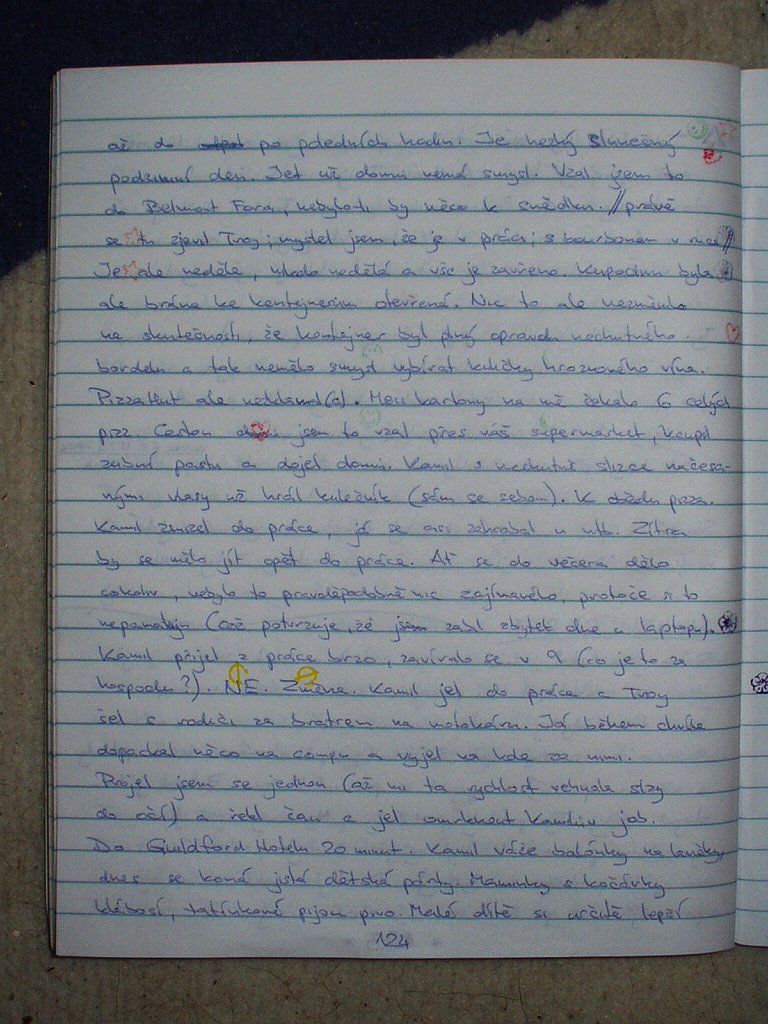 až do po poledních hodin. Je hezký slunečný
podzimní den. Jet už domů nemá smysl. Vzal jsem to
do Belmont Fora, nebylo-li by něco k snědku. // právě
se tu zjevil Troy; myslel jsem, že je v práci; s bourbonem v ruce //
Je ale neděle, nikdo nedělá a vše je zavřeno. Kupodivu byla
ale brána ke kontejnerům otevřená. Nic to ale nezměnilo
na skutečnosti, že kontejner byl plný opravdu nechutného
bordelu a tak nemělo smysl vybírat kuličky hroznového vína.
Pizza Hut ale nezklamal(a). Mezi kartony na mě čekalo 6 celých
pizz. Cestou domů jsem to vzal přes váš supermarket, koupil
zubní pastu a dojel domů. Kamil s nechutně slizce načesa-
nými vlasy už hrál kulečník (sám se sebou). K obědu pizza.
Kamil zmizel do práce, já se asi zahrabal u ntb. Zítra
by se mělo jít opět do práce. Ať se do večera dělo
cokoliv, nebylo to pravděpodobně nic zajímavého, protože si to
nepamatuju (což potvrzuje, že jsem zabil zbytek dne u laptopu).
Kamil přijel z práce brzo, zavíralo se v 9 (co je to za
hospodu?). NE. Změna. Kamil jel do práce a Troy
šel s rodiči za bratrem na motokáru. Já během chvíle
dopáchal něco na compu a vyjel na kole za nimi.
Projel jsem se jednou (až mi ta rychlost vehnala slzy
do očí) a řekl čau a jel omrknout Kamilův job.
Do Guildford Hotelu 20 minut. Kamil váže balónky na lavičky,
dnes se koná jistá dětská párty. Maminky s kočárky
klábosí, tatínkové pijou pivo. Malé dítě si určitě lepší
124